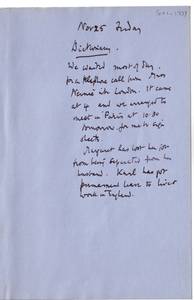 Nov 25 Friday
Dictionary.
We waited most of day
for a telephone call from Miss
in London. It came
at 4 and we arranged to
meet in Paris at 10.30
tomorrow for me to sign
sheets.
Margaret has lost her job
from being separated from her
husband. Karl has got
permanent leave to live &
work in England.